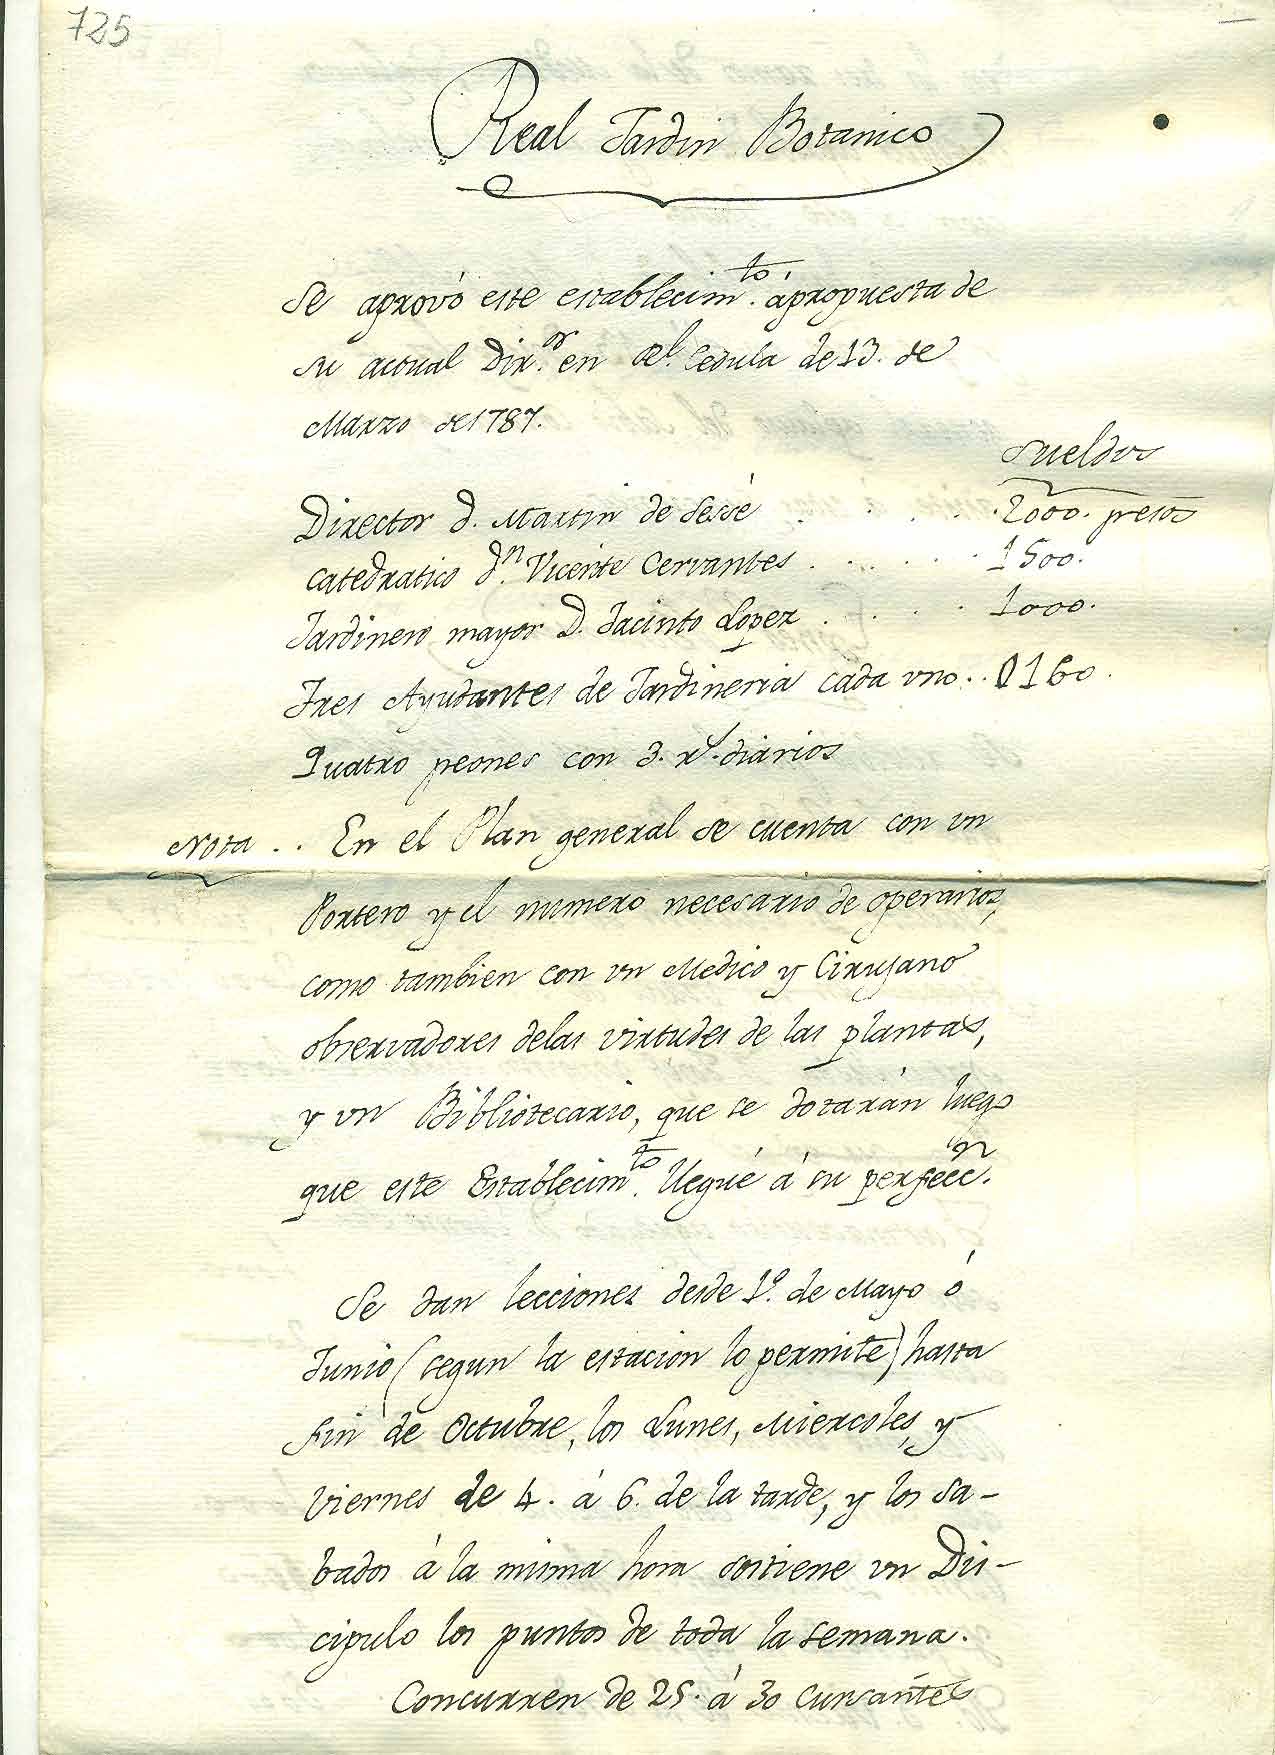 725
Real Jardin Botanico
Se aprovó este establecim.to á propuesta de
su actual Dir.or en Rl. Cedula de 13. de
Marzo de 1787.
Sueldos
Director d. Martin de Sessé . . . . . 2000. pesos
Catedratico dn. Vicente Cervantes . . . . . . 1500.
Jardinero mayor D. Jacinto Lopez . . . . 1000.
Tres Ayudantes de Jardineria cada vno . . 0160.
Quatro peones con 3. rs. diarios
Nota . . En el Plan general se cuenta con vn
Portero y el numero necesario de operarios,
como tambien con vn Medico y Cirujano
observadores delas virtudes de las plantas,
y vn Bibliotecario, que se dotarán luego
que este Establecim.to llegué á su perfecc.n
Se dan lecciones desde 1º. de Mayo ó
Junio (segun la estacion lo permite) hasta
fin de Octubre, los Lunes, Miercoles, y
Viernes de 4. á 6. de la tarde, y los Sa-
bados á la misma hora sostiene vn Dis-
cipulo los puntos de toda la semana.
Concurren de 25. á 30 Cursantes